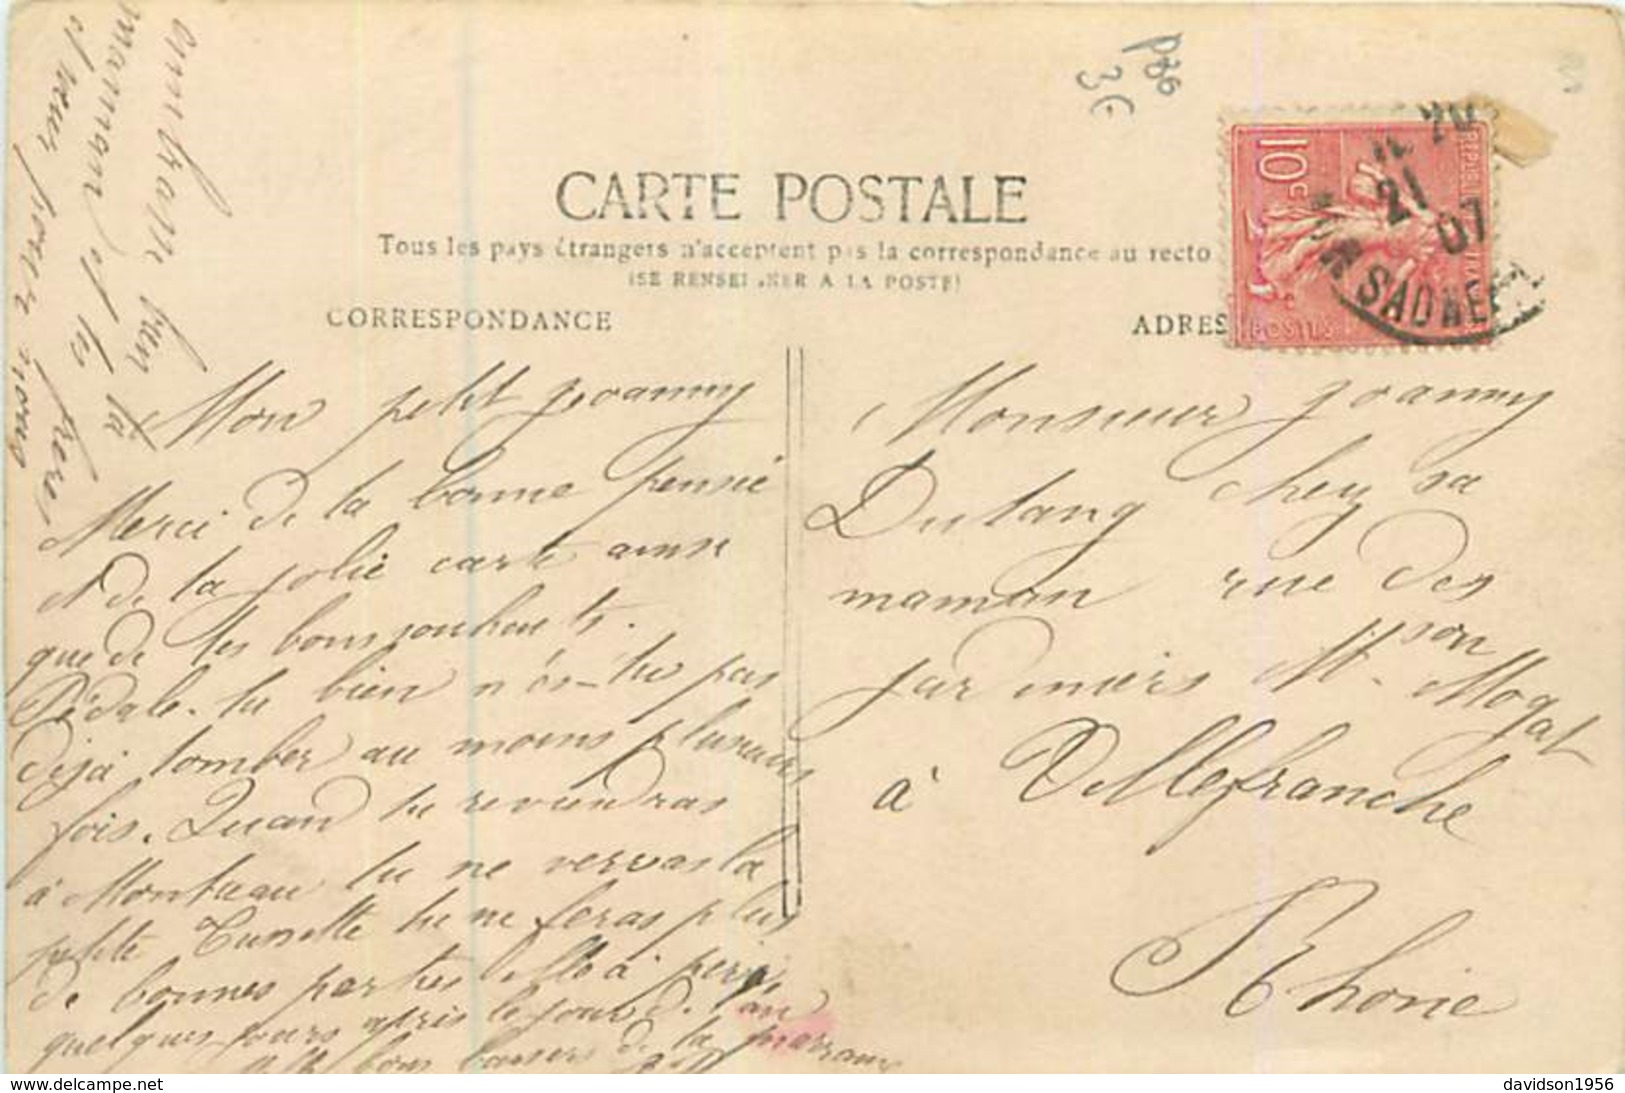 CARTE POSTALE
Tous les pays étrangers n'acceptent pas la correspondance au recto
(SE RENSEIGNER A LA POSTE)
CORRESPONDANCE
ADRES
10c
POSTES
21
07
Mon petit Joanny
Merci de la bonne pensée
et de la jolie carte ainsi
que de tes bons souhaits.
Pédale-tu bien n'es-tu pas
déjà tomber au moins plusieurs
fois. Quand tu reviendras
à Montceau tu ne verras la
petite tu ne feras plus
de bonnes parties elle à péri
quelques jours après le jour de l'an
bons baisers de la marraine
embrasse bien ta
maman et tes
frères
et sœur pour nous
Monsieur Joanny
Dutang chez sa
maman rue des
Jardiniers Mson
Mogat
à Villefranche
Rhône
3€
davidson1956
www.delcampe.net